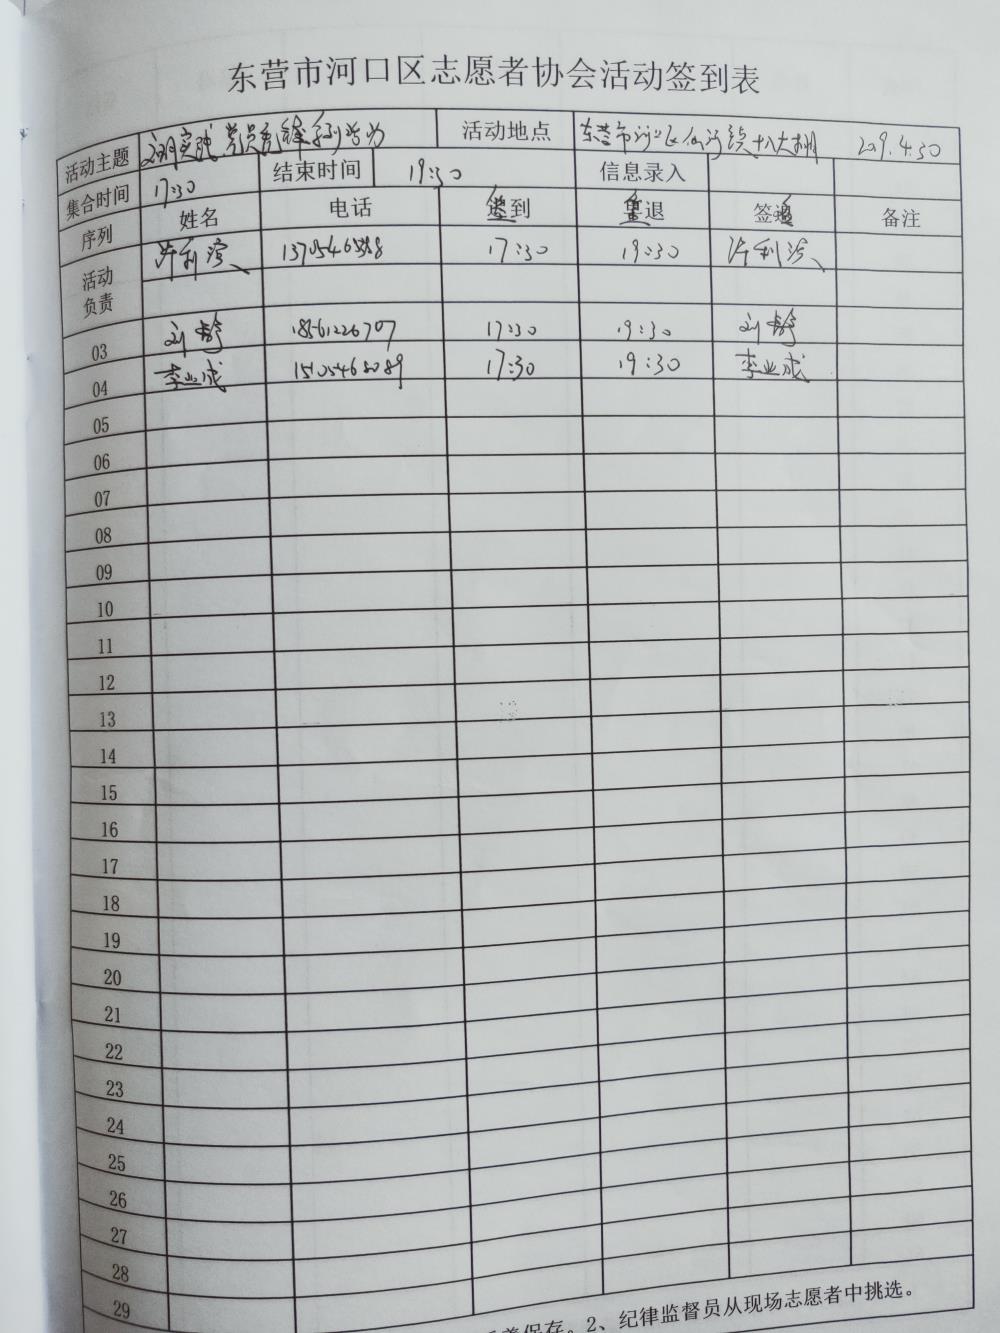 东营市河口区志愿者协会活动签到表
活动主题 文明实践 党员先锋 活动地点 东营市河口区仙河镇 2019.4.30
集合时间 17:30 结束时间 19:30 信息录入
序列 姓名 电话 到 退 签 备注
活动负责 许利滨 17:30 19:30 许利滨
03 刘静 18561226707 17:30 19:30 刘静
04 李业成 15105468089 17:30 19:30 李业成
05
06
07
08
09
10
11
12
13
14
15
16
17
18
19
20
21
22
23
24
25
26
27
28
29
保存。2、纪律监督员从现场志愿者中挑选。